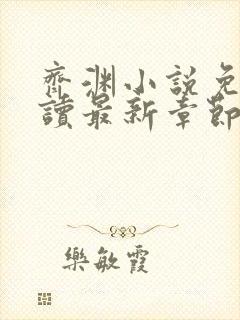 齊淵小說免
讀最新章節
樂敏霞